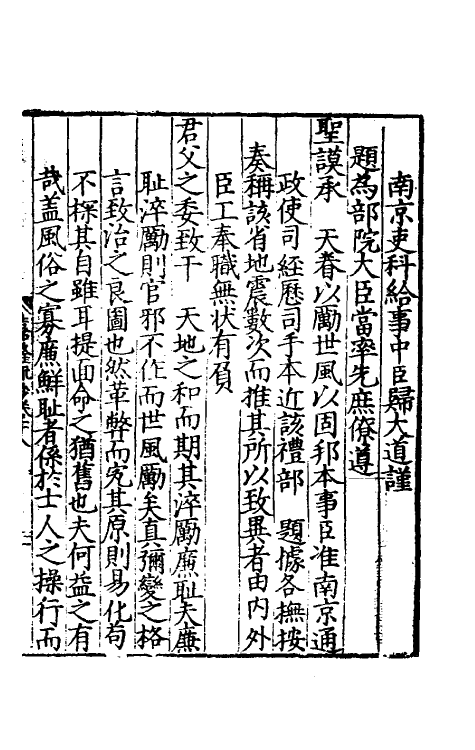 南京吏科給事中臣歸大道謹
題為部院大臣當率先庶僚遵
聖謨承　天眷以勵世風以固邦本事臣准南京通
政使司經歷司手本近該禮部　題據各撫按
奏稱該省地震數次而推其所以致異者由内外
臣工奉職無状有負
君父之委致干　天地之和而期其淬勵廉耻夫廉
耻淬勵則官邪不作而世風勵矣真彌變之格
言致治之良圖也然革弊而究其原則易化苟
不探其自雖耳提面命之猶舊也夫何益之有
哉盖風俗之寡廉鮮耻者係於士人之操行而